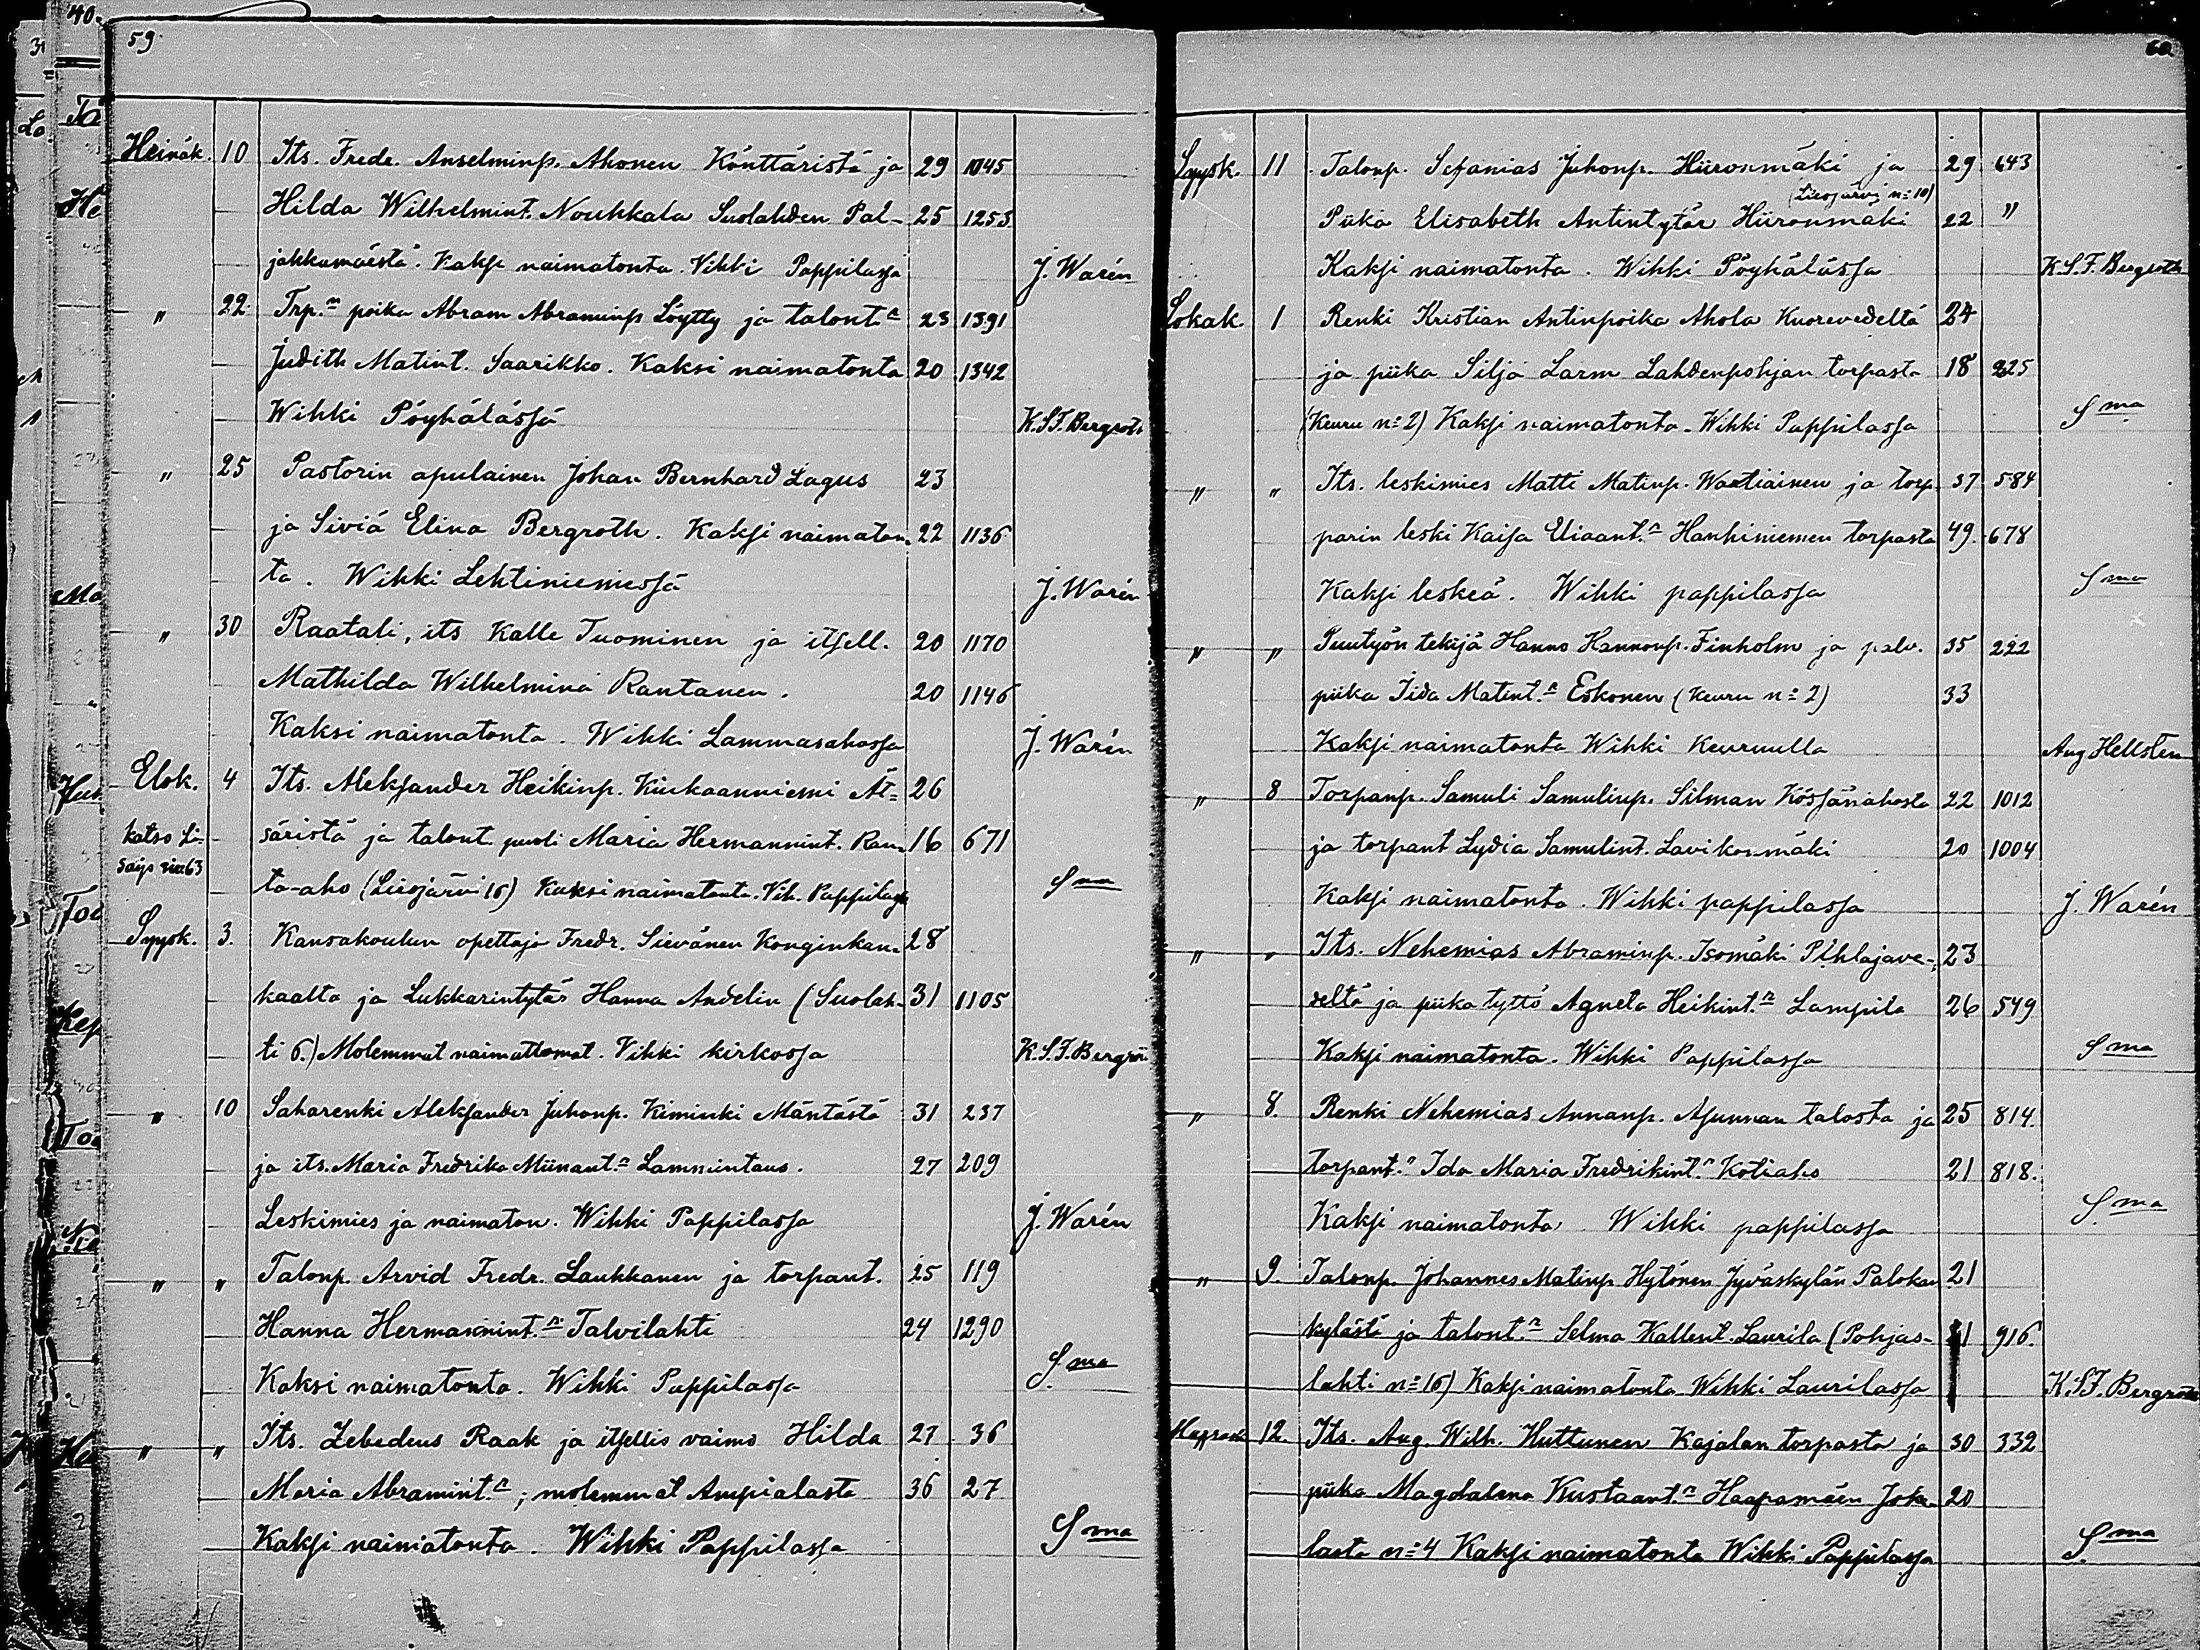 40.
59
Heinäk. 10 Its. Fredr. Anselminp. Ahonen Könttäristä ja 29 1045
Hilda Wilhelmint. Nouhkala Suolahden Pal- 25 1253
jakkamäestä. Kaksi naimatonta. Vihki Pappilassa J. Warén
" 22 Trp.n poika Abram Abraminp Löytty ja talont.n 23 1391
Judith Matint. Saarikko. Kaksi naimatonta 20 1342
Wihki Pöyhälässä K.S.F. Bergroth
" 25 Pastorin apulainen Johan Bernhard Lagus 23
ja Siviä Elina Bergroth. Kaksi naimaton- 22 1136
ta. Wihki Lehtiniemessä J. Warén
" 30 Raatali, its Kalle Tuominen ja itsell. 20 1170
Mathilda Wilhelmina Rantanen. 20 1146
Kaksi naimatonta. Wihki Lammasahossa J. Warén
Elok. 4 Its. Aleksander Heikinp. Kiukaanniemi Ät- 26
katso Li- säristä ja talont. puoli Maria Hermannint. Ran- 16 671
säys siv. 63 ta-aho (Liesjärvi 16) Kaksi naimatonta. Vih. Pappilassa S ma
Syysk. 3. Kansakoulun opettaja Fredr. Sievänen Konginkan- 28
kaalta ja Lukkarintytär Hanna Andelin (Suolah- 31 1105
ti 6.) Molemmat naimattomat. Vihki kirkossa K.S.F. Bergroth
" 10 Saharenki Aleksander Juhonp. Kiminki Mäntästä 31 237
ja its. Maria Fredrika Miinant.n Lammintaus. 27 209
Leskimies ja naimaton. Wihki Pappilassa J. Warén
" " Talonp. Arvid Fredr. Laukkanen ja torpant. 25 119
Hanna Hermannint.n Talvilahti 24 1290
Kaksi naimatonta. Wihki Pappilassa S. ma
" " Its. Zebedeus Raak ja itsellis vaimo Hilda 27 36
Maria Abramint.n; molemmat Ampialasta 36 27
Kaksi naimatonta. Wihki Pappilassa S ma
60.
Syysk. 11 Talonp. Sefanias Juhonp. Hiironmäki ja 29 643
(Liesjärvi n:o 10)
Piika Elisabeth Antintytär Hiironmäki 22 "
Kaksi naimatonta. Wihki Pöyhälässä K.S.F. Bergroth
Lokak. 1 Renki Kristian Antinpoika Ahola Kuorevedeltä 24
ja piika Silja Larm Lahdenpohjan torpasta 18 225
(Keuru n:o 2) Kaksi naimatonta. Wihki Pappilassa S ma
" " Its. leskimies Matti Matinp. Waatiainen ja torp 37 584
parin leski Kaisa Eliaant.n Hanhiniemen torpasta 49. 678
Kaksi leskeä. Wihki pappilassa S ma
" " Puutyön tekijä Hanno Hannonp. Finholm ja palv. 35 222
piika Iida Matint.n Eskonen (Keuru n:o 2) 33
Kaksi naimatonta Wihki Keuruulla Aug Hellsten
" 8 Torpanp. Samuli Samulinp. Silman Kössänahosta 22 1012
ja torpant Lydia Samulint. Lavikonmäki 20 1004
Kaksi naimatonta. Wihki pappilassa J. Warén
" " Its. Nehemias Abraminp. Isomäki Pihlajave- 23
deltä ja piika tyttö Agneta Heikint.n Lampila 26 549
Kaksi naimatonta. Wihki Pappilassa S ma
" 8. Renki Nehemias Annanp. Asunnan talosta ja 25 814.
torpant.n Ida Maria Fredrikint.n Kotiaho 21 818.
Kaksi naimatonta Wihki pappilassa S. ma
" 9. Talonp. Johannes Matinp Hytönen Jyväskylän Palokan 21
kylästä ja talont.n Selma Kallent. Laurila (Pohjas- 21 916.
lahti n:o 16) Kaksi naimatonta Wihki Laurilassa K.S.F. Bergroth
Marrask. 12. Its. Aug. Wilh. Huttunen Kajalan torpasta ja 30 332
piika Magdalena Kustaant.n Haapamäen Joke- 20
lasta n:o 4 Kaksi naimatonta Wihki Pappilassa S. ma